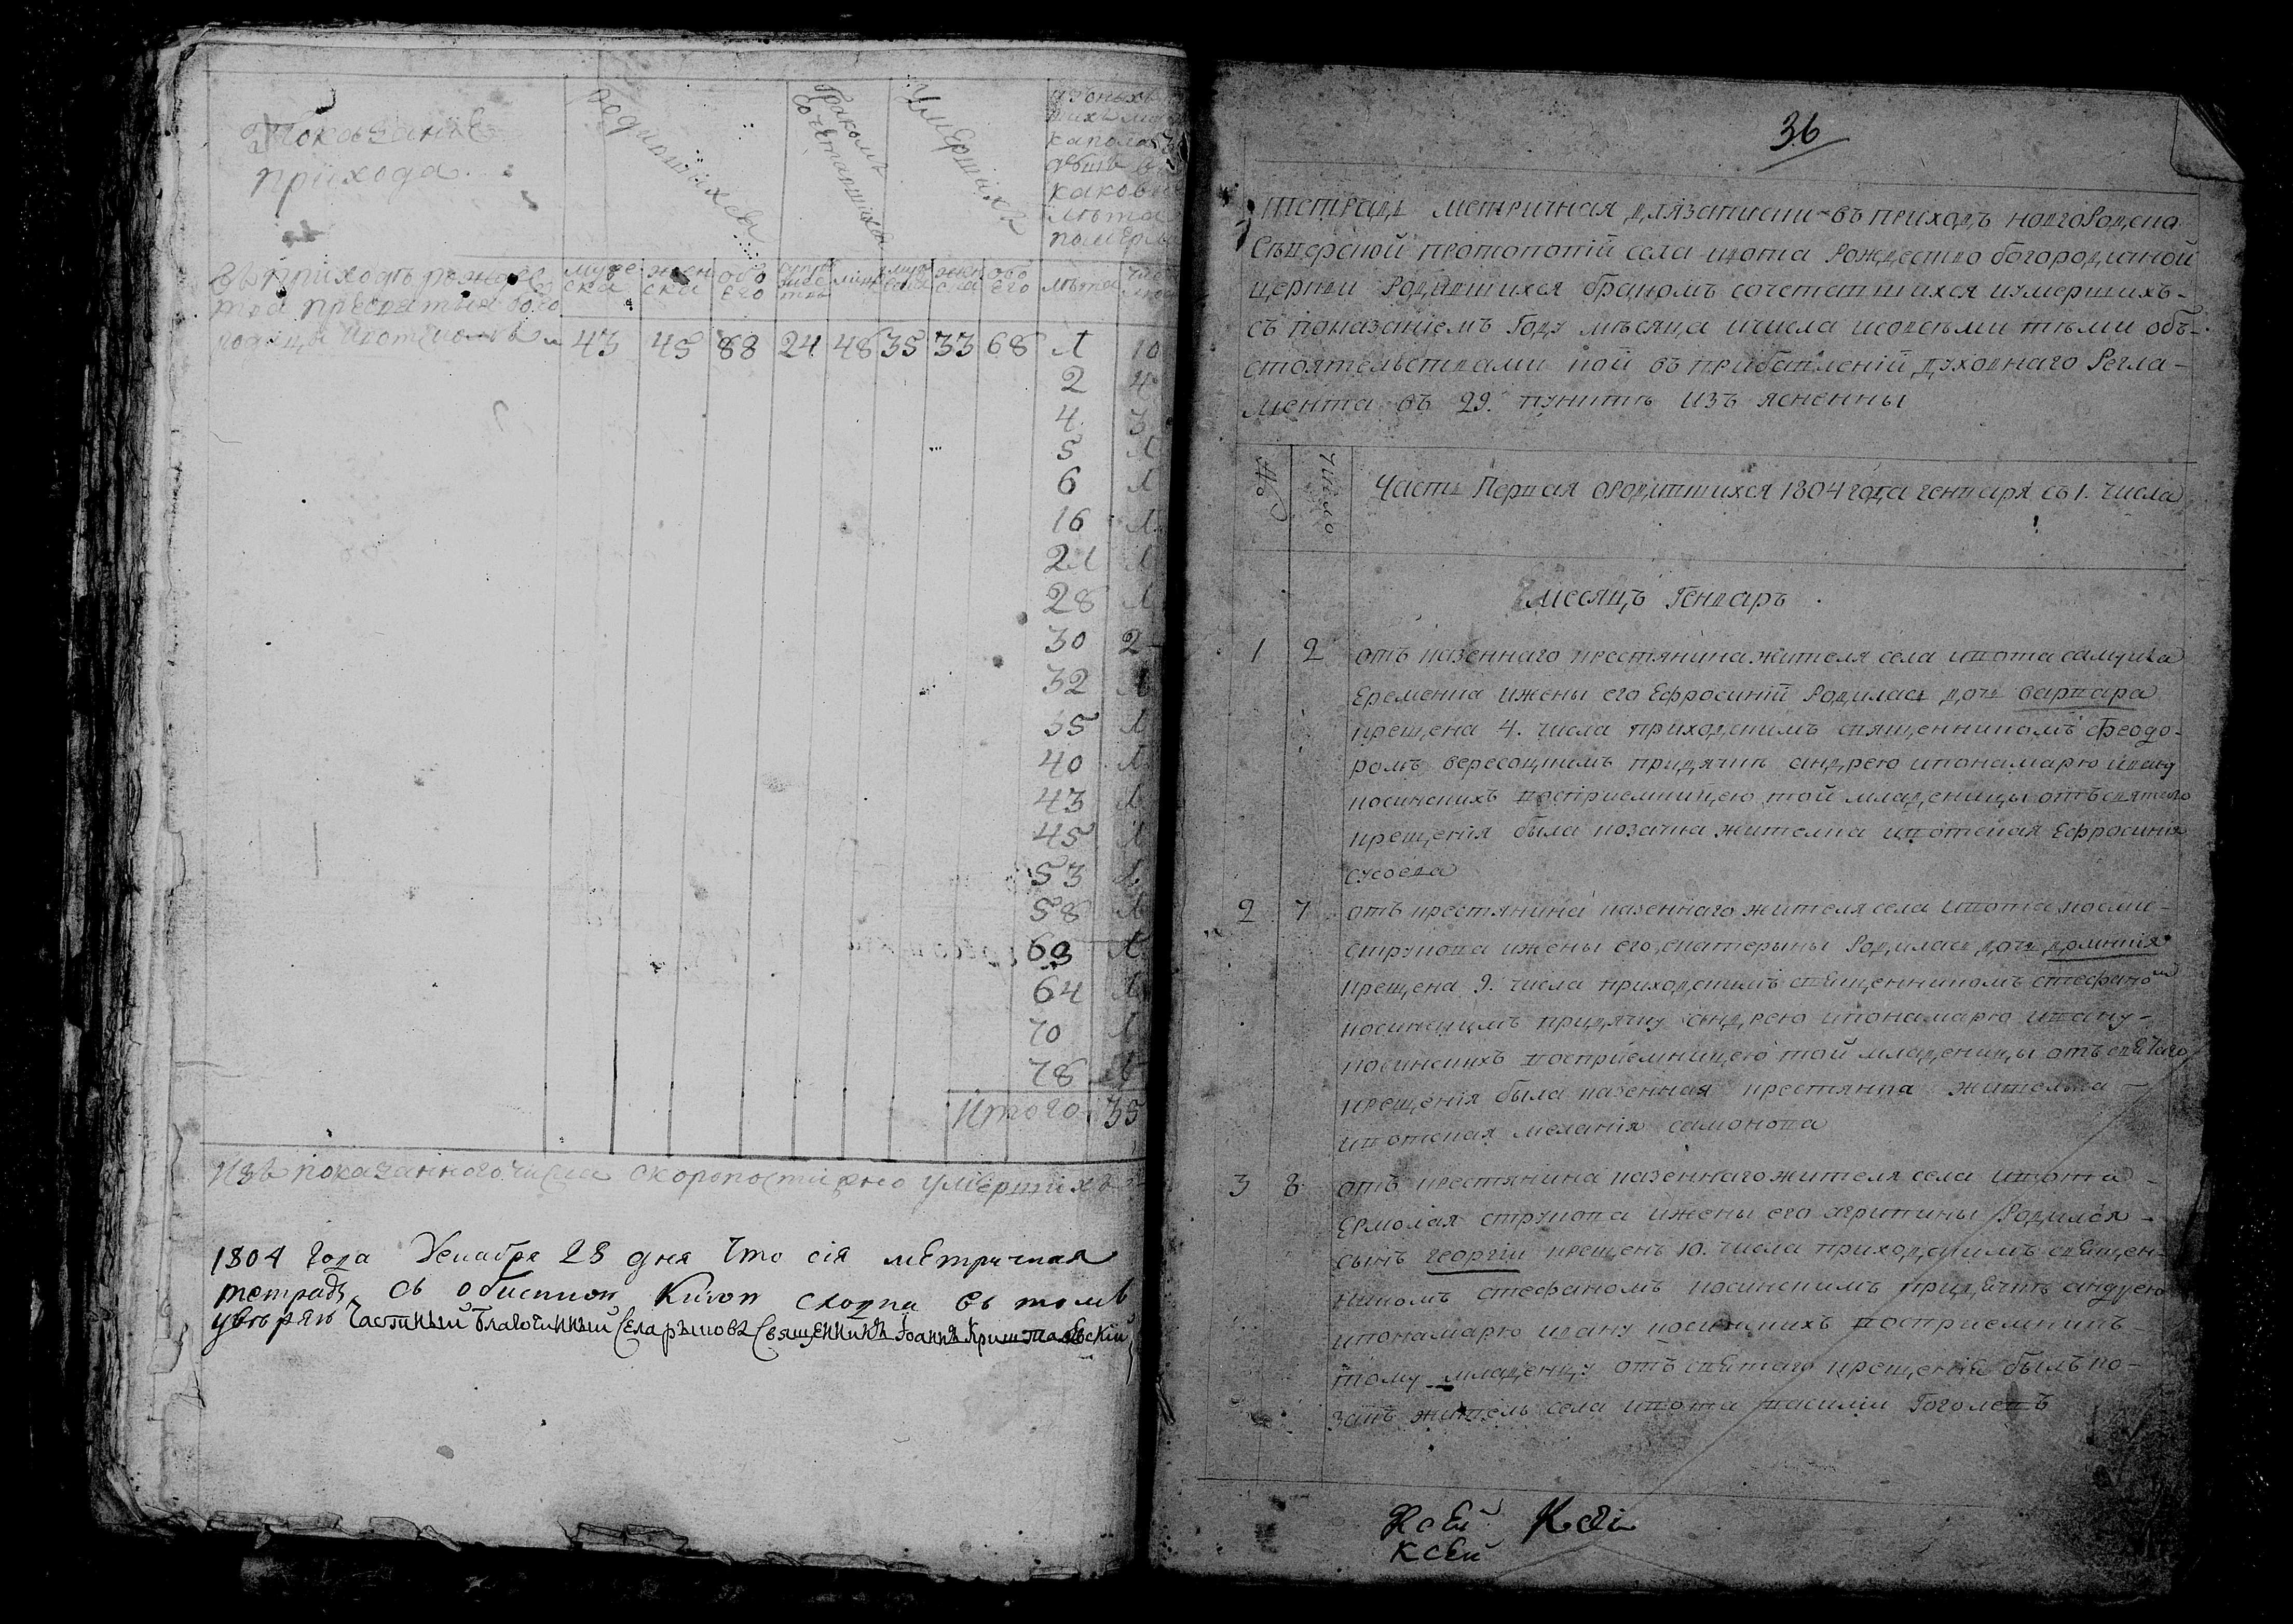 Показание
прихода
родившихся
Браколъ
сочетавшихся
Умершихъ
каковы
лѣта
померли
Въ приходѣ рождес
тва пресвятыя бого
родицы
муже
ска
жен
ска
обо
его
муж
ска
жен
ска
обо
его
лѣта
43 45 88 24 48 35 33 68 Л 10
2 4
4 3
5 Л
6 Л
16 Л
2Л Л
28 Л
30 2
32 Л
35 Л
40 Л
43 Л
45 Л
53 Л
58 Л
63 Л
64 Л
70 Л
78 Л
Итого 35
Изъ показанного числа скоропостижно умершихъ
1804 года Декабря 28 дня что сія метричная
тетрадь съ обыскною Книгою сходна въ томъ
увѣряю Частный благочинный села рыковъ Священникъ Іоаннъ
36
тетрадь метричная для записки въ приходѣ новгородска
сѣверской протопопіи села ивота Рождество богородичной
церкви Родившихся бракомъ сочетавшихся иумершихъ
съ показаніемъ Году мѣсяца ичисла исовсѣми тѣми объ-
стоятельствами кои въ прибавленіи духовнаго Регла-
мента въ 29. пунктѣ изъ яснены
№
Число
Часть Первая ородившихся 1804 года генваря съ 1. числа
месяцъ Генваръ
1 2 отъ казеннаго крестянина жителя села ивота самуила
Еременка ижены его Ефросиніи Родилась дочь варвара
крещена 4. числа приходскимъ священникомъ Феодо-
ромъ вересоцкимъ придячкѣ андрею ипонамарю ивану
косинскихъ восприемницею той младеницы отъ святаго
крещенія была козачка жителка ивотская Ефросинія
сусоеда
2 7 отъ крестянина казеннаго жителя села ивота косми
струкова ижены его екатерыны Родилась дочь домникія
крещена 9. числа приходскимъ священникомъ стефаномъ
косинскимъ придячку андрею ипонамарю ивану
косинскихъ восприемницею той младеницы отъ святаго
крещенія была казенная крестянка жителька
ивотская меланія самонова
3 8 отъ крестянина казеннаго жителя села ивота
Ермолая струкова ижены его агрипины Родился
сынъ георгіи крещенъ 10. числа приходскимъ священ-
никомъ стефаномъ косинскимъ придячкѣ андрею
ипонамарю ивану косинскихъ восприемникъ
тому младенцу отъ святаго крещенія былъ ко-
закъ житель села ивота василіи Гоголевъ
Ксей
ксей